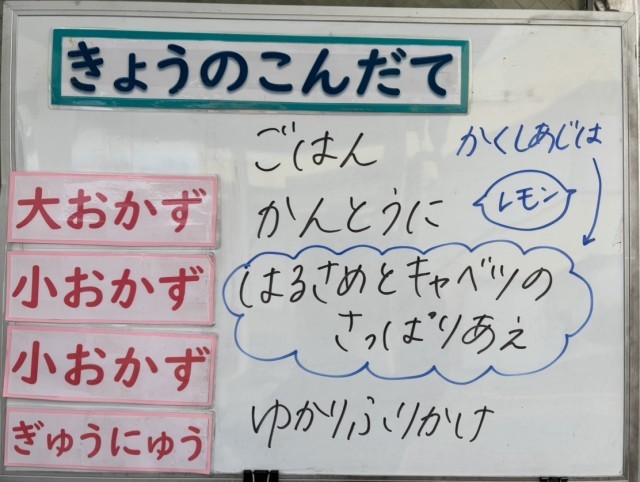 きょうのこんだて
ごはん
かくしあじは
レモン
大おかず
かんとうに
小おかず
はるさめとキャベツの
さっぱりあえ
小おかず
ゆかりふりかけ
ぎゅうにゅう